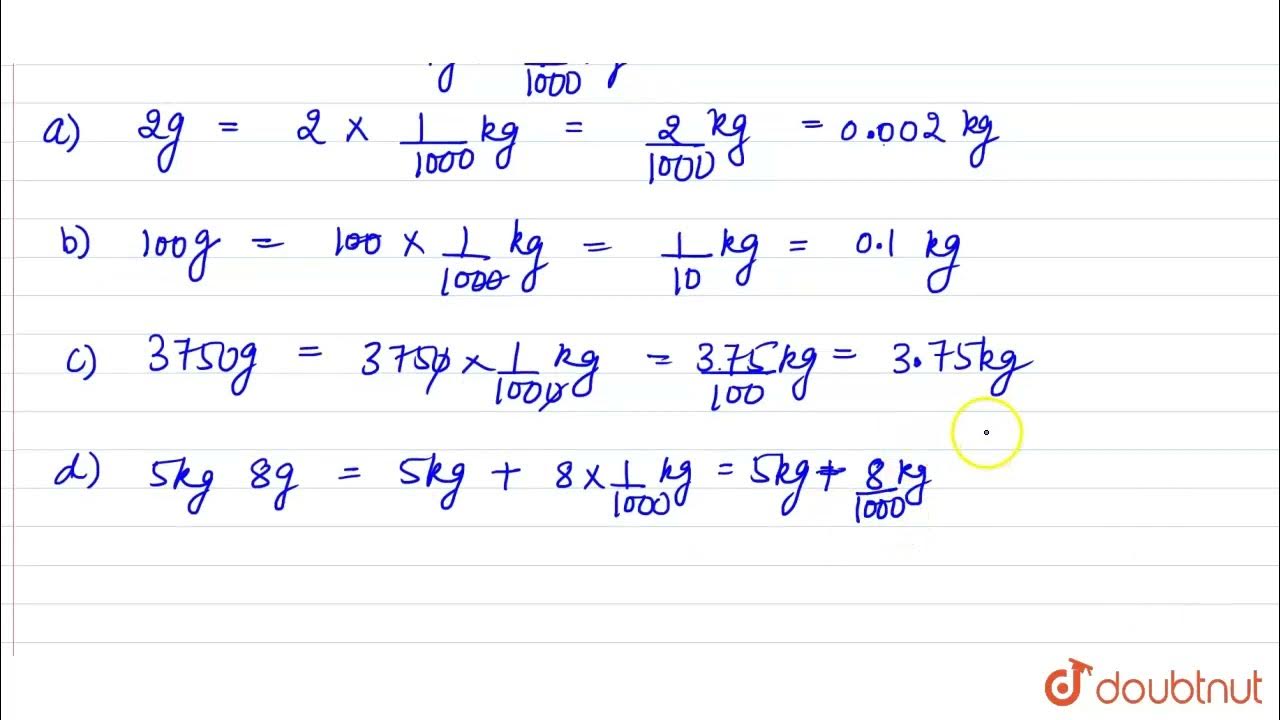 g 1000 g
a) 2g = 2 × 1/1000 kg = 2/1000 kg = 0.002 kg
b) 100g = 100 × 1/1000 kg = 1/10 kg = 0.1 kg
c) 3750g = 3750 × 1/1000 kg = 3.75/100 kg = 3.75kg
d) 5kg 8g = 5kg + 8 × 1/1000 kg = 5kg + 8/1000 kg
doubtnut